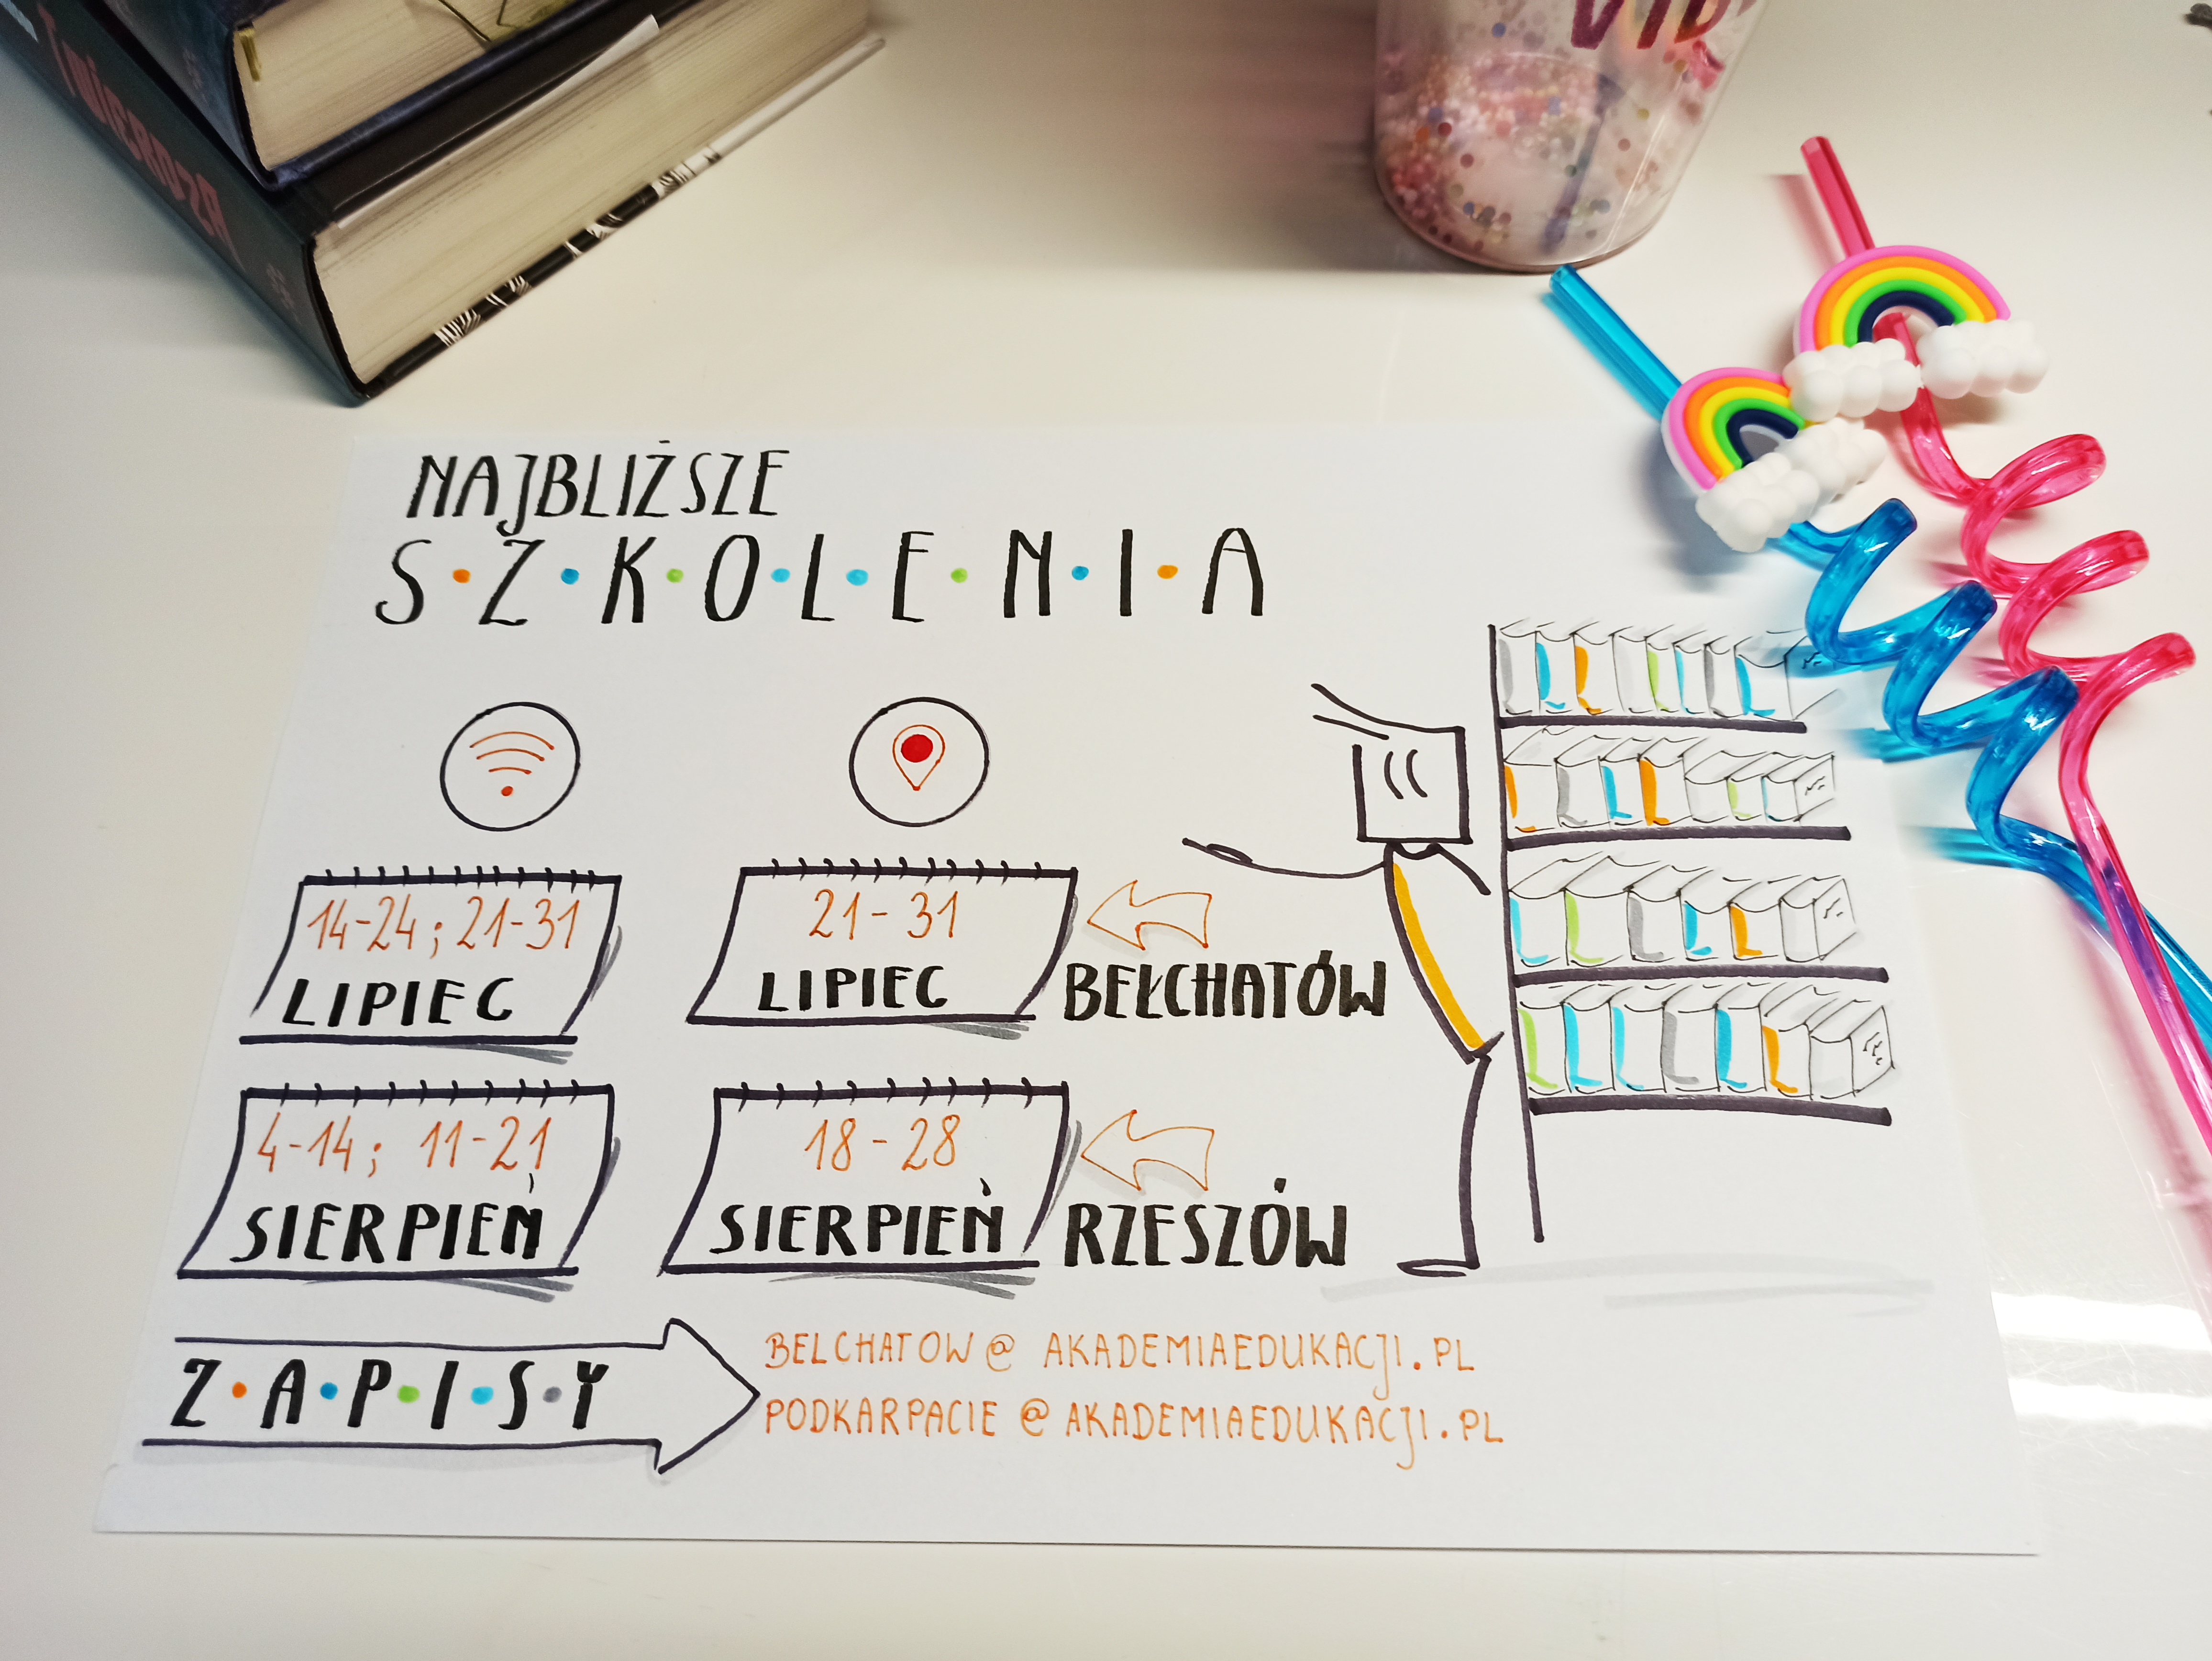 TWIERDZA
VIB
NAJBLIŻSZE
S·Z·K·O·L·E·N·I·A
14-24; 21-31
LIPIEC
21-31
LIPIEC
BEŁCHATÓW
4-14; 11-21
SIERPIEŃ
18-28
SIERPIEŃ
RZESZÓW
Z·A·P·I·S·Y
BELCHATOW@AKADEMIAEDUKACJI.PL
PODKARPACIE@AKADEMIAEDUKACJI.PL